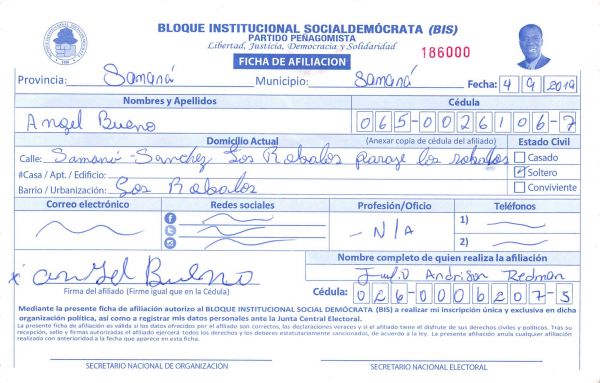 BLOQUE INSTITUCIONAL SOCIALDEMÓCRATA (BIS)
PARTIDO PEÑAGOMISTA
Libertad, Justicia, Democracia y Solidaridad
FICHA DE AFILIACION
186000
Provincia: Samaná Municipio: Samaná Fecha: 4 9 2019
Nombres y Apellidos Cédula
Angel Bueno 065-0026106-7
Domicilio Actual (Anexar copia de cédula del afiliado) Estado Civil
Calle: Samaná-Sanchez Los Robalos paraje los robalos
Casado
#Casa / Apt. / Edificio: Soltero
Barrio / Urbanización: Los Robalos Conviviente
Correo electrónico Redes sociales Profesión/Oficio Teléfonos
1)
- N/A
2)
Nombre completo de quien realiza la afiliación
x Angel Bueno Julio Andrison Redman
Firma del afiliado (Firme igual que en la Cédula) Cédula: 026-0006207-5
Mediante la presente ficha de afiliación autorizo al BLOQUE INSTITUCIONAL SOCIAL DEMÓCRATA (BIS) a realizar mi inscripción única y exclusiva en dicha
organización política, así como a registrar mis datos personales ante la Junta Central Electoral.
La presente ficha de afiliación es válida si los datos ofrecidos por el afiliado son correctos, las declaraciones veraces y si el afiliado tiene el disfrute de sus derechos civiles y políticos. Tras su
recepción, sello y firmas autorizadas el afiliado ejercerá todos los derechos y los deberes estatutariamente sancionados, de acuerdo a la ley. La presente afiliación anula cualquier afiliación
realizada con anterioridad a la fecha que aparece en esta ficha.
SECRETARIO NACIONAL DE ORGANIZACIÓN SECRETARIO NACIONAL ELECTORAL